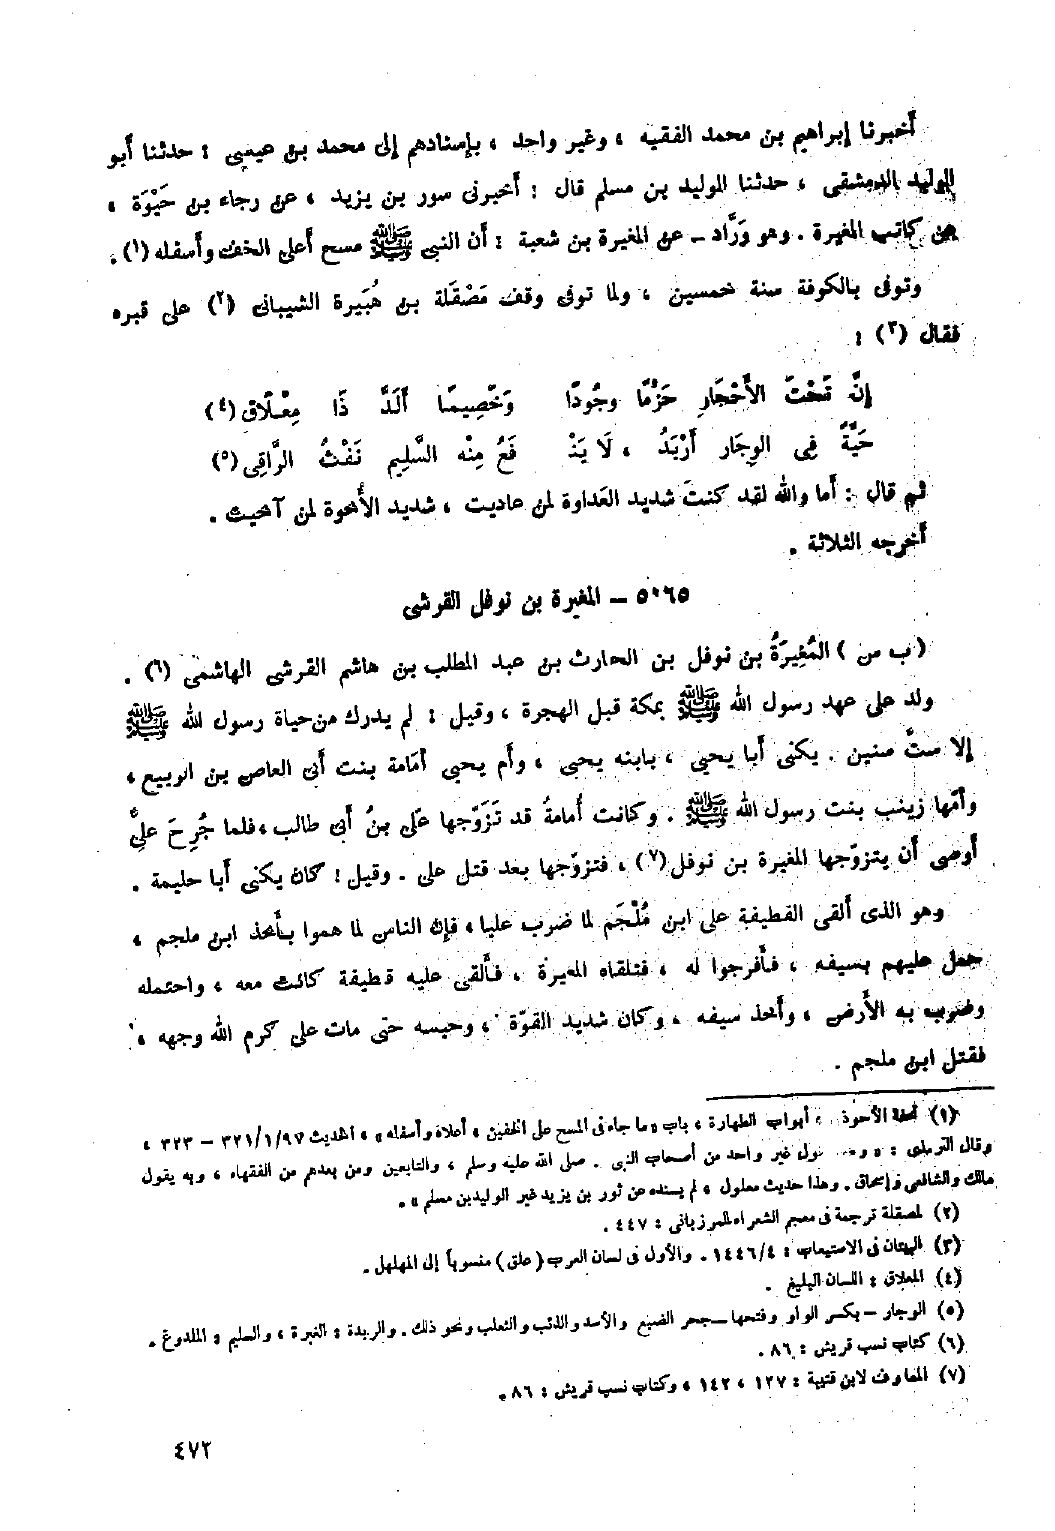 أخبرنا إبراهيم بن محمد الفقيه ، وغير واحد ، بإسنادهم إلى محمد بن عيسى : حدثنا أبو
الوليد الدمشقى ، حدثنا الوليد بن مسلم قال : أخبرنى سور بن يزيد ، عن رجاء بن حَيْوَة ،
عن كاتب المغيرة . وهو وَرَّاد – عن المغيرة بن شعبة : أن النبى ﷺ مسح أعلى الخف وأسفله (١) .
وتوفى بالكوفة سنة خمسين ، ولما توفى وقف مَصْقَلة بن هُبَيرة الشيبانى (٢) على قبره
فقال (٣) :
إنَّ تَحْتَ الأَحْجَارِ حَزْمًا وجُودًا وَخَصِيمًا أَلَدَّ ذَا مِعْلَاق (٤)
حَيَّةٌ فِى الوِجَار أَرْبَدُ ، لَا يَنْـ فَعُ مِنْه السَّلِيم نَفْثُ الرَّاقِى (٥)
ثم قال : أما والله لقد كنتَ شديد العَداوة لمن عاديت ، شديد الأُخوة لمن آخيت .
أخرجه الثلاثة .
٥٠٦٥ – المغيرة بن نوفل القرشى
( ب س ) المُغِيرَةُ بن نوفل بن الحارث بن عبد المطلب بن هاشم القرشى الهاشمى (٦) .
ولد على عهد رسول الله ﷺ بمكة قبل الهجرة ، وقيل : لم يدرك من حياة رسول لله ﷺ
إلا ستَّ سنين . يكنى أبا يحيى ، بابنه يحيى ، وأم يحيى أمَامة بنت أبى العاص بن الربيع ،
وأمّها زينب بنت رسول الله ﷺ . وكانت أُمامةُ قد تَزَوّجها علىّ بنُ أبى طالب ، فلما جُرِحَ علىٌّ
أوصى أن يتزوّجها المغيرة بن نوفل (٧) ، فتزوّجها بعد قتل على . وقيل : كان يكنى أبا حليمة .
وهو الذى ألقى القطيفة على ابن مُلْجَم لما ضرب عليا ، فإن الناس لما هموا بأخذ ابن ملجم ،
حمل عليهم بسيفه ، فأفرجوا له ، فتلقاه المغيرة ، فألقى عليه قطيفة كانت معه ، واحتمله
وضرب به الأرض ، وأخذ سيفه ، وكان شديد القوّة ، وحبسه حتى مات على كرم الله وجهه ،
فقتل ابن ملجم .
(١) تحفة الأحوذ ، أبواب الطهارة ، باب « ما جاء فى المسح على الخفين ، أعلاه وأسفله » ، الحديث ٣٢١/١/٩٧ – ٣٢٣ ،
وقال الترمذى : « و قول غير واحد من أصحاب النبى . صلى الله عليه وسلم ، والتابعين ومن بعدهم من الفقهاء ، وبه يقول
مالك والشافعى وإسحاق . وهذا حديث معلول ، لم يسنده عن ثور بن يزيد غير الوليد بن مسلم » .
(٢) لمصقلة ترجمة فى معجم الشعراء للمرزبانى : ٤٤٧ .
(٣) البيتان فى الاستيعاب : ١٤٤٦/٤ . والأول فى لسان العرب ( علق ) منسوباً إلى المهلهل .
(٤) المعلاق : اللسان البليغ .
(٥) الوجار – بكسر الواو وفتحها – جحر الضبع والأسد والذئب والثعلب ونحو ذلك . والربدة : الغبرة ، والسليم : الملدوغ .
(٦) كتاب نسب قريش : ٨٦ .
(٧) المعارف لابن قتيبة : ١٢٧ ، ١٤٢ ، وكتاب نسب قريش : ٨٦ .
٤٧٢